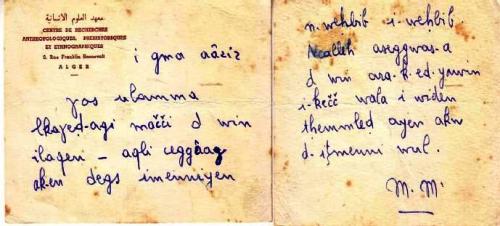 معهد العلوم الإنسانية
CENTRE DE RECHERCHES
ANTHROPOLOGIQUES, PRÉHISTORIQUES
ET ETHNOGRAPHIQUES
2, Rue Franklin Roosevelt
ALGER
i gma aâziz
γas ulamma
lkaγed-agi mačči d win
ilaqen – aqli uggaγ
ak-en degs imenniyen
n-weḥbib i-weḥbib
Ncalleh aseggwas-a
d win ara-k-ed-yawin
i-kečč wala i widen
tḥemmled ayen akw
d-iţmenni wul.
M. M.